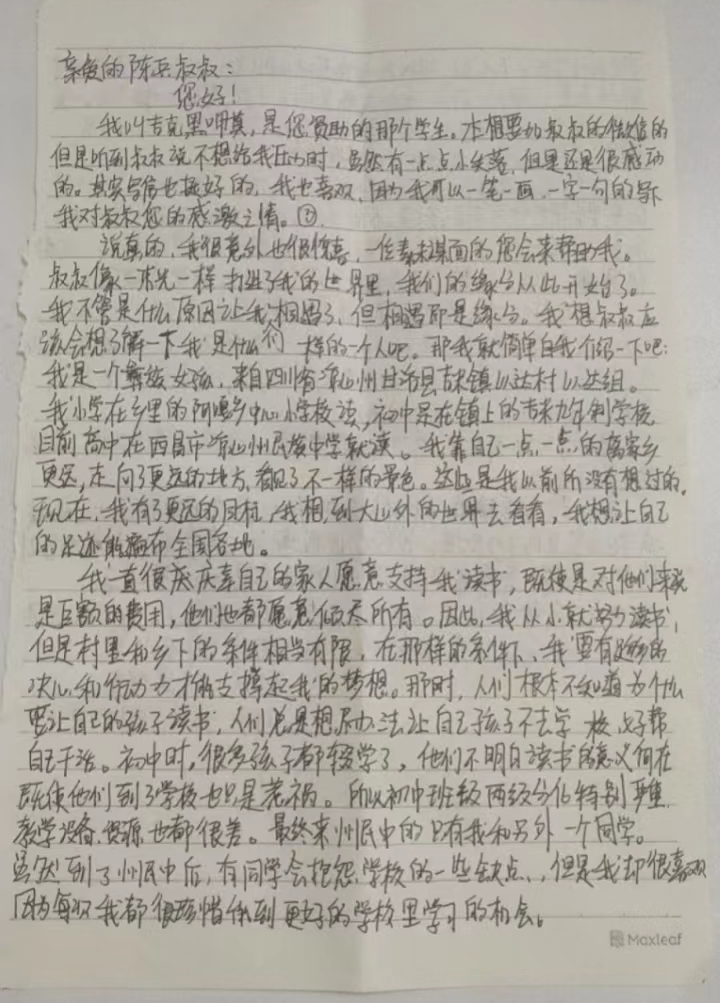 亲爱的陈兵叔叔：
您好！
我叫吉克黑呷莫，是您资助的那个学生。本想要加叔叔的微信的
但是听到叔叔说不想给我压力时，虽然有一点点小失落，但是还是很感动
的。其实写信也挺好的，我也喜欢，因为我可以一笔一画，一字一句的写下
我对叔叔您的感激之情。
说真的，我很意外也很惊喜，一位素未谋面的您会来帮助我。
叔叔像一束光一样打进了我的世界里，我们的缘分从此开始了。
我不管是什么原因让我相遇了，但相遇即是缘分。我想叔叔应
该会想了解一下我是什么 样的一个人吧。那我就简单自我介绍一下吧：
我是一个彝族女孩，来自四川省凉山州甘洛县吉米镇以达村以达组。
我小学在乡里的阿嘎乡中心小学校读，初中是在镇上的吉米九年制学校
目前高中在西昌市凉山州民族中学就读。我靠自己一点一点的离家乡
更远，走向了更远的地方，看见了不一样的景色。这些是我以前所没有想过的，
现在，我有了更远的目标，我想到大山外的世界去看看，我想让自己
的足迹能遍布全国各地。
我一直很庆庆幸自己的家人愿意支持我读书，既使是对他们来说
是巨额的费用，他们也都愿意倾尽所有。因此，我从小就努力读书，
但是村里和乡下的条件相当有限，在那样的条件下，我要有足够的
决心和行动力才能支撑起我的梦想。那时，人们根本不知道为什么
要让自己的孩子读书，人们总是想尽办法让自己孩子不去学校，好帮
自己干活。初中时，很多孩子都辍学了，他们不明白读书的意义何在
既使他们到了学校也只是荒祸。所以初中班级两级分化特别严重，
教学设备、资源也都很差。最终来州民中的只有我和另外一个同学。
虽然到了州民中后，有同学会抱怨学校的一些缺点，但是我却很喜欢
因为每次我都很珍惜来到更好的学校里学习的机会。
Maxleaf